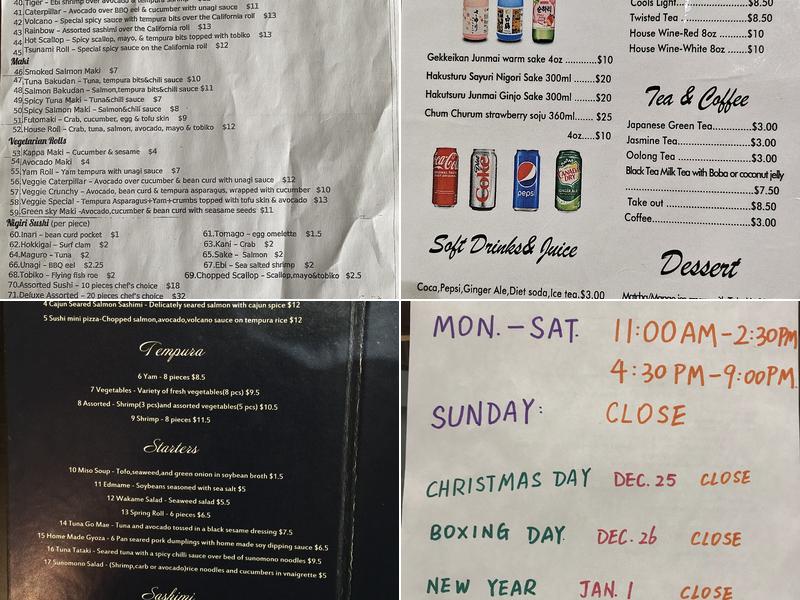 40.Tiger - Ebi shrimp over avocado & tempura shrimp
41.Caterpillar - Avocado over BBQ eel & cucumber with unagi sauce $11
42.Volcano - Special spicy sauce with tempura bits over the California roll $13
43.Rainbow - Assorted sashimi over the California roll $13
44.Hot Scallop - Spicy scallop, mayo, & tempura bits topped with tobiko $13
45.Tsunami Roll - Special spicy sauce on the California roll $12
Maki
46.Smoked Salmon Maki $7
47.Tuna Bakudan - Tuna, tempura bits&chili sauce $10
48.Salmon Bakudan - Salmon,tempura bits&chili sauce $11
49.Spicy Tuna Maki - Tuna&chili sauce $7
50.Spicy Salmon Maki - Salmon&chili sauce $8
51.Futomaki - Crab, cucumber, egg & tofu skin $9
52.House Roll - Crab, tuna, salmon, avocado, mayo & tobiko $12
Vegetarian Rolls
53.Kappa Maki - Cucumber & sesame $4
54.Avocado Maki $4
55.Yam Roll - Yam tempura with unagi sauce $7
56.Veggie Caterpillar - Avocado over cucumber & bean curd with unagi sauce $12
57.Veggie Crunchy - Avocado, bean curd & tempura asparagus, wrapped with cucumber $10
58.Veggie Special - Tempura Asparagus+Yam+crumbs topped with tofu skin & avocado $13
59.Green sky Maki -Avocado,cucumber & bean curd with seasame seeds $11
Nigiri Sushi (per piece)
60.Inari - bean curd pocket $1
61.Tomago - egg omelette $1.5
62.Hokkigai - Surf clam $2
63.Kani - Crab $2
64.Maguro - Tuna $2
65.Sake - Salmon $2
66.Unagi - BBQ eel $2.25
67.Ebi - Sea salted shrimp $2
68.Tobiko - Flying fish roe $2
69.Chopped Scallop - Scallop,mayo&tobiko $2.5
70.Assorted Sushi - 10 pieces chef's choice $18
71.Deluxe Assorted - 20 pieces chef's choice $32
Gekkeikan Junmai warm sake 4oz $10
Hakusturu Sayuri Nigori Sake 300ml $20
Hakutsuru Junmai Ginjo Sake 300ml $20
Chum Churum strawberry soju 360ml....... $25
4oz.....$10
Coca-Cola
Coke
pepsi
CANADA DRY
GINGER ALE
Soft Drinks& Juice
Coca,Pepsi,Ginger Ale,Diet soda,Ice tea.$3.00
Cools Light $8.50
Twisted Tea $8.50
House Wine-Red 8oz $10
House Wine-White 8oz $10
Tea & Coffee
Japanese Green Tea $3.00
Jasmine Tea $3.00
Oolong Tea $3.00
Black Tea Milk Tea with Boba or coconut jelly
$7.50
Take out $8.50
Coffee $3.00
Dessert
4 Cajun Seared Salmon Sashimi - Delicately seared salmon with cajun spice $12
5 Sushi mini pizza-Chopped salmon,avocado,volcano sauce on tempura rice $12
Tempura
6 Yam - 8 pieces $8.5
7 Vegetables - Variety of fresh vegetables(8 pcs) $9.5
8 Assorted - Shrimp(3 pcs)and assorted vegetables(5 pcs) $10.5
9 Shrimp - 8 pieces $11.5
Starters
10 Miso Soup - Tofo,seaweed,and green onion in soybean broth $1.5
11 Edmame - Soybeans seasoned with sea salt $5
12 Wakame Salad - Seaweed salad $5.5
13 Spring Roll - 6 pieces $6.5
14 Tuna Go Mae - Tuna and avocado tossed in a black sesame dressing $7.5
15 Home Made Gyoza - 6 Pan seared pork dumplings with home made soy dipping sauce $6.5
16 Tuna Tataki - Seared tuna with a spicy chilli sauce over bed of sunomono noodles $9.5
17 Sunomono Salad - (Shrimp,carb or avocado)rice noodles and cucumbers in vnaigrette $5
Sashimi
MON.-SAT. 11:00AM-2:30PM
4:30PM-9:00PM
SUNDAY: CLOSE
CHRISTMAS DAY DEC. 25 CLOSE
BOXING DAY DEC.26 CLOSE
NEW YEAR JAN.1 CLOSE